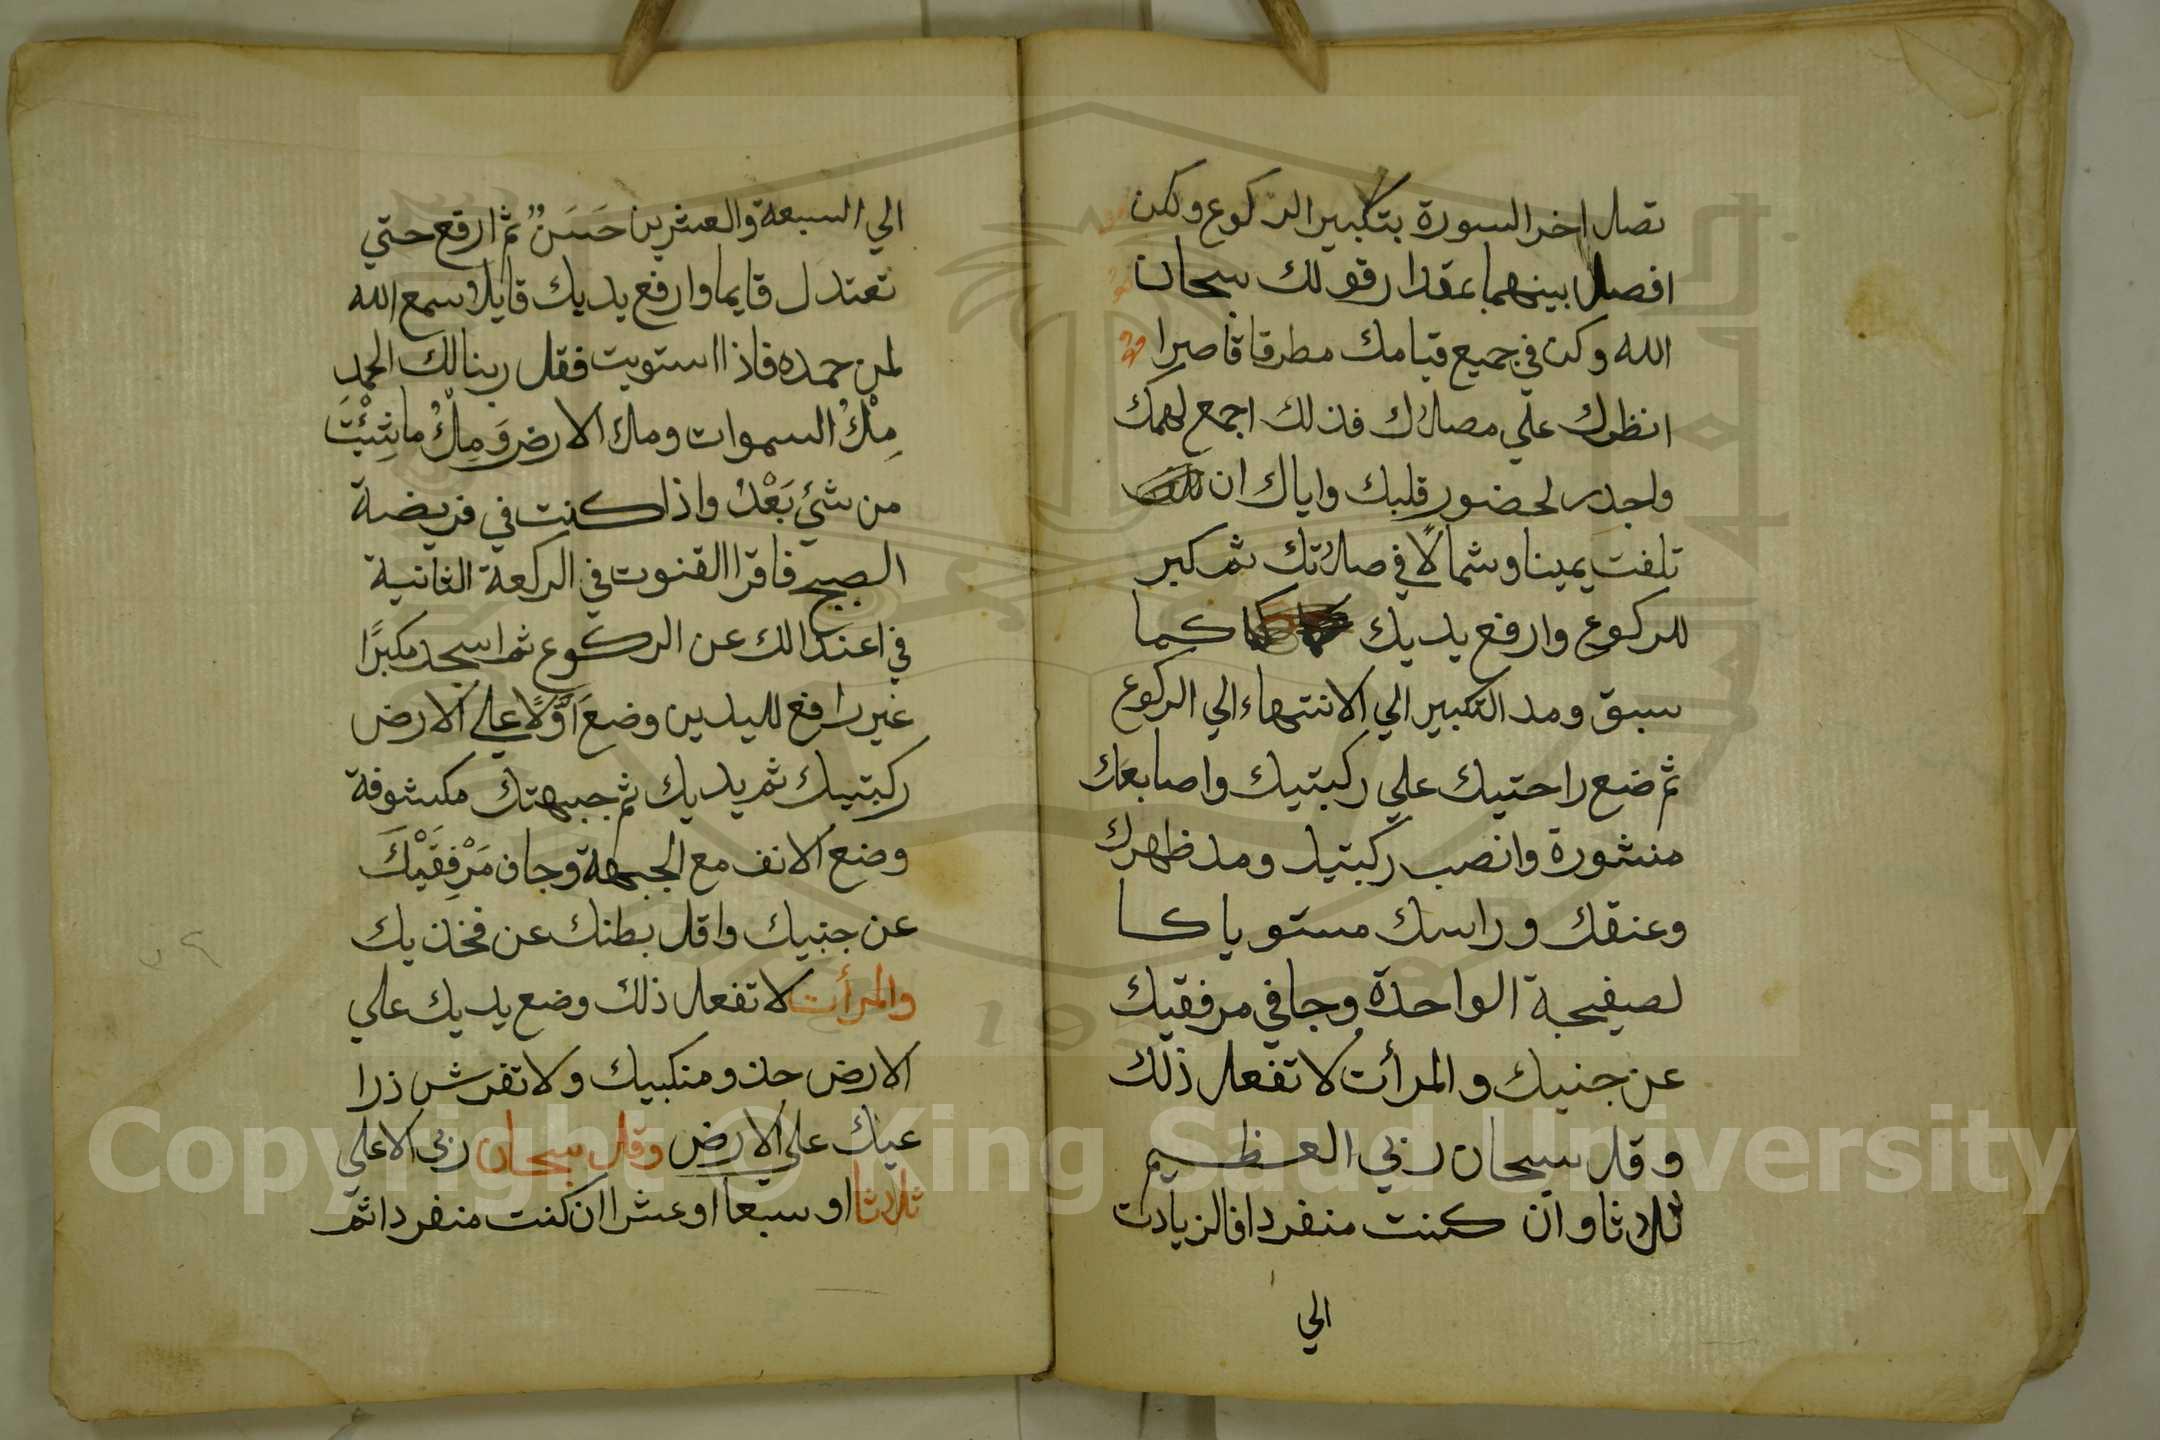 تصل اخر السورة بتكبير الركوع ولكن
افصل بينهما بمقدار قولك سبحان
الله وكن في جميع قيامك مطرقا قاصرا
انظرك علي مصلاك فذلك اجمع لهمك
واجدر لحضور قلبك واياك ان
تلفت يمينا وشمالا في صلاتك ثم كبر
للركوع وارفع يديك كما
سبق ومد التكبير الي الانتهاء الي الركوع
ثم ضع راحتيك علي ركبتيك واصابعك
منشورة وانصب ركبتيك ومد ظهرك
وعنقك وراسك مستويا كا
لصيفحة الواحدة وجافي مرفقيك
عن جنبيك والمرأت لا تفعل ذلك
وقل سبحان ربي العظيم
ثلاثا وان كنت منفردا فالزيادت
الي
الي السبعة والعشرين حَسَنٌ ثم ارفع حتي
تعتدل قايما وارفع يديك قايلا سمع الله
لمن حمده فاذا استويت فقل ربنا لك الحمد
مِلْأُ السموات وملأ الارض وَمِلْأُ ما شِئْتَ
من شيْ بَعْدُ واذا كنت في فريضة
الصبح فاقرا القنوت في الركعة الثانية
في اعتدالك عن الركوع ثم اسجد مكبرًا
غير رافع لليدين وضع اَوَّلًا علي الارض
ركبتيك ثم يديك ثم جبهتك مكشوفة
وضع الانف مع الجبهة وجاف مَرْفِقَيْكَ
عن جنبيك واقل بطنك عن فخذيك
والمرأت لا تفعل ذلك وضع يديك علي
الارض حذو منكبيك ولا تفرش ذرا
عيك علي الارض وقل سبحان ربي الاعلي
ثلاثا او سبعا او عشرا ان كنت منفردا ثم
Copyright © King Saud University